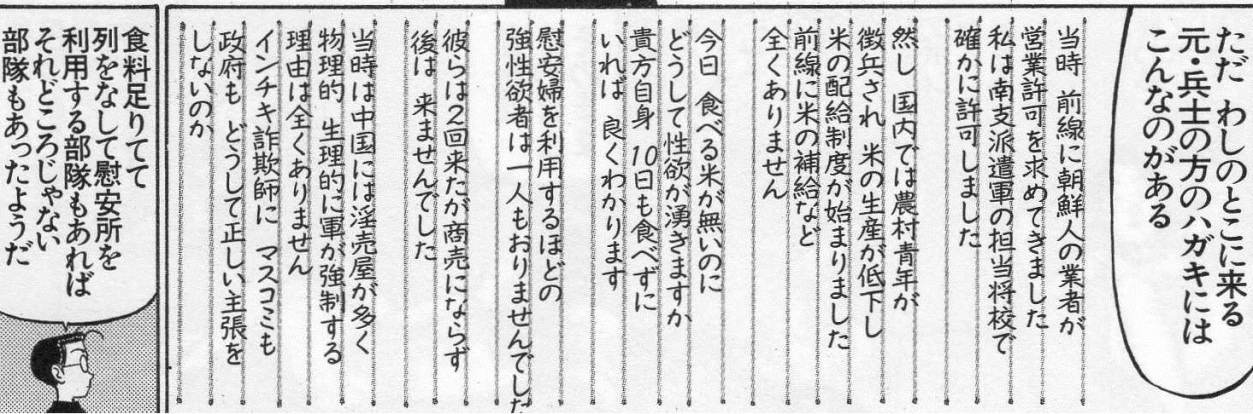 ただ わしのとこに来る
元・兵士の方のハガキには
こんなのがある
当時 前線に朝鮮人の業者が
営業許可を求めてきました
私は南支派遣軍の担当将校で
確かに許可しました
然し 国内では農村青年が
徴兵され 米の生産が低下し
米の配給制度が始まりました
前線に米の補給など
全くありません
今日 食べる米が無いのに
どうして性欲が湧きますか
貴方自身 10日も食べずに
いれば 良くわかります
慰安婦を利用するほどの
強性欲者は一人もおりませんでした
彼らは2回来たが商売にならず
後は 来ませんでした
当時は中国には淫売屋が多く
物理的 生理的に軍が強制する
理由は全くありません
インチキ詐欺師に マスコミも
政府も どうして正しい主張を
しないのか
食料足りてて
列をなして慰安所を
利用する部隊もあれば
それどころじゃない
部隊もあったようだ